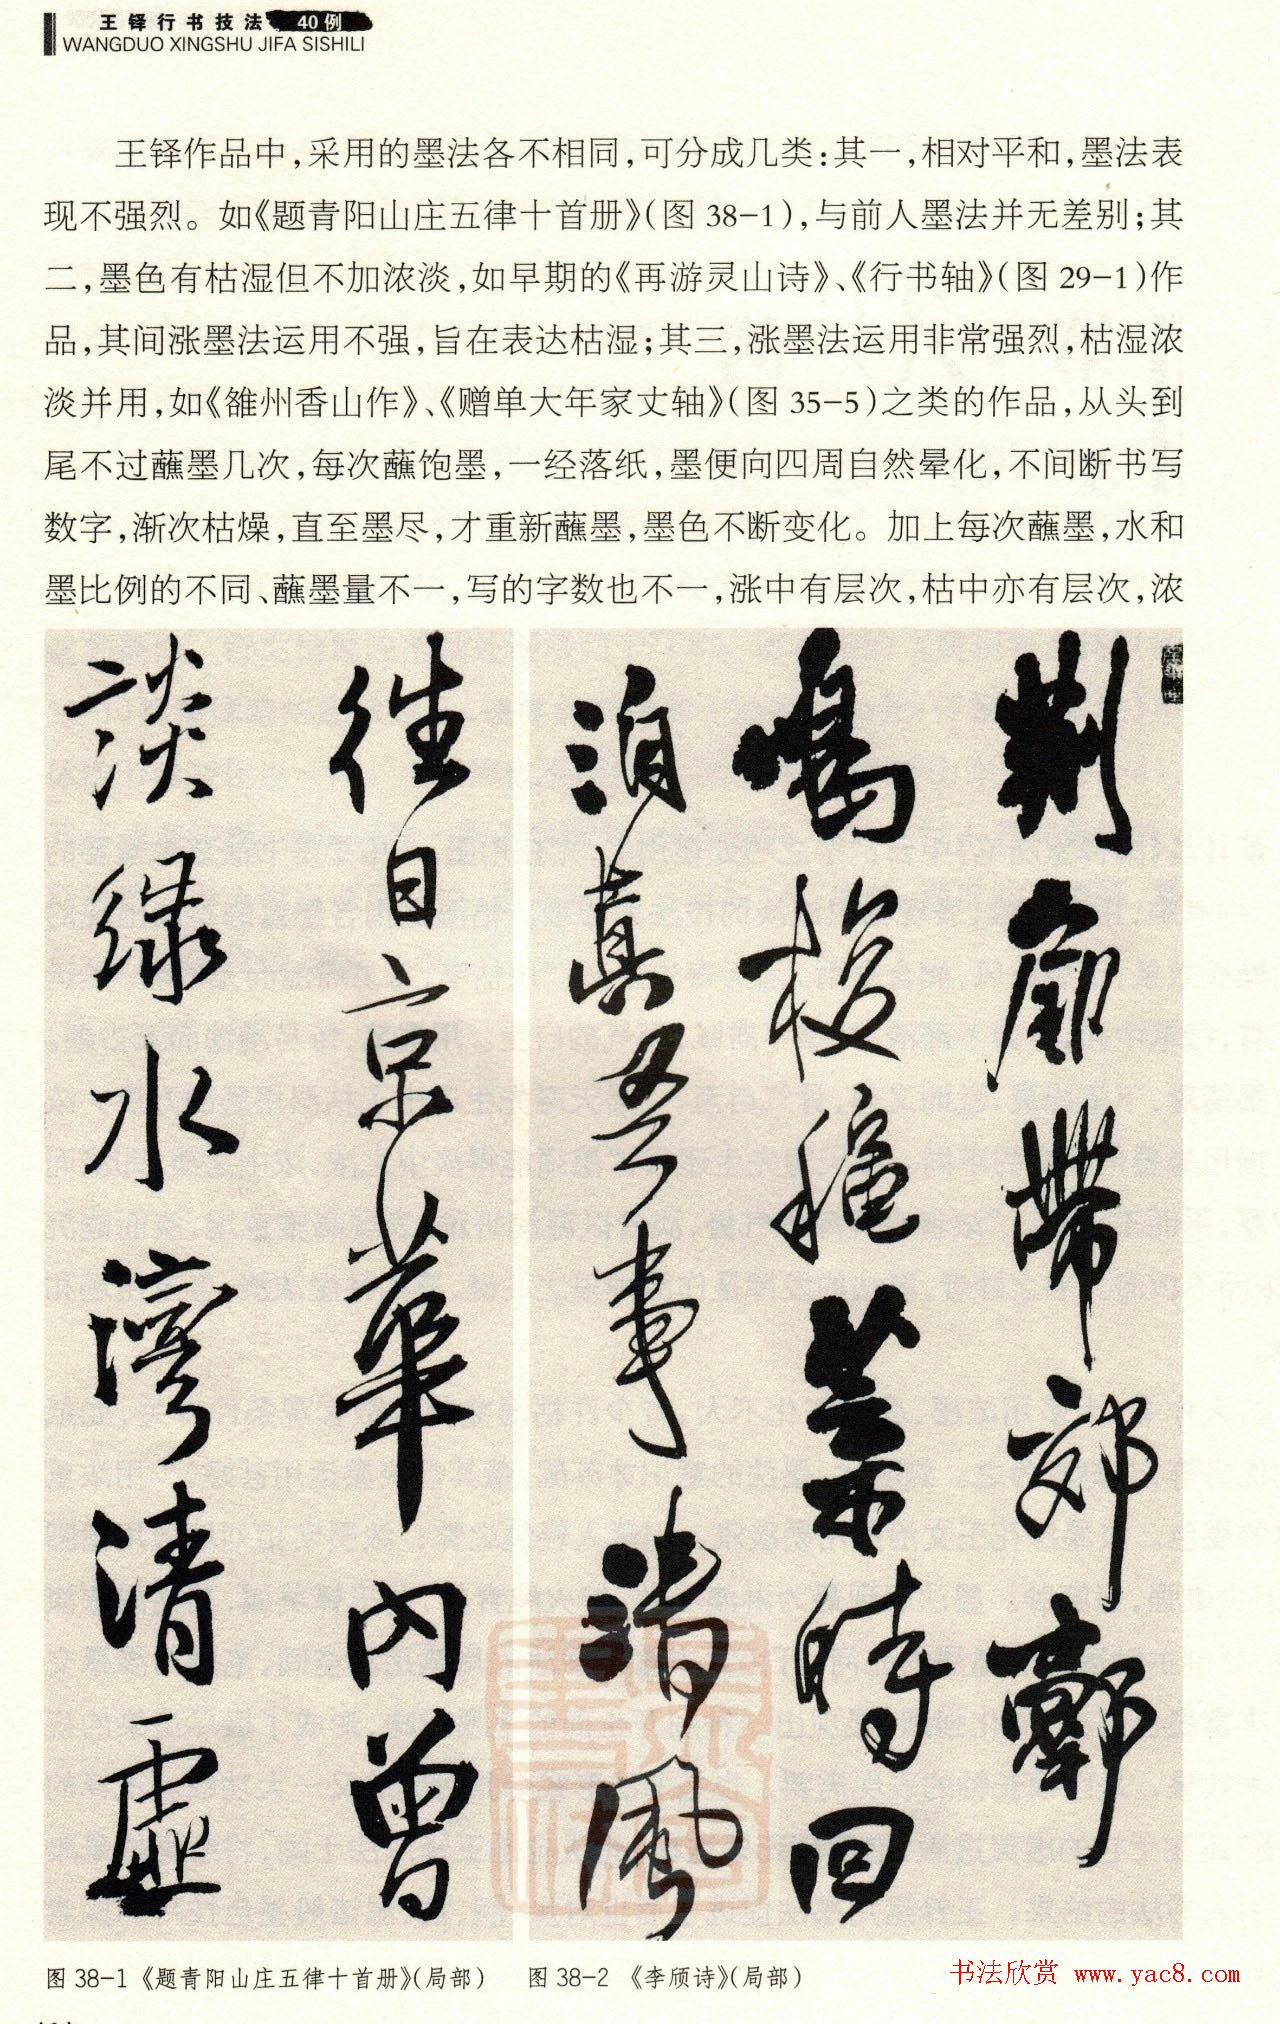 王铎行书技法 40例
WANGDUO XINGSHU JIFA SISHILI
王铎作品中，采用的墨法各不相同，可分成几类：其一，相对平和，墨法表
现不强烈。如《题青阳山庄五律十首册》（图 38-1），与前人墨法并无差别；其
二，墨色有枯湿但不加浓淡，如早期的《再游灵山诗》、《行书轴》（图 29-1）作
品，其间涨墨法运用不强，旨在表达枯湿；其三，涨墨法运用非常强烈，枯湿浓
淡并用，如《雒州香山作》、《赠单大年家丈轴》（图 35-5）之类的作品，从头到
尾不过蘸墨几次，每次蘸饱墨，一经落纸，墨便向四周自然晕化，不间断书写
数字，渐次枯燥，直至墨尽，才重新蘸墨，墨色不断变化。加上每次蘸墨，水和
墨比例的不同、蘸墨量不一，写的字数也不一，涨中有层次，枯中亦有层次，浓
往日京華内曾
談綠水灣清虛
荆帶郊郭
鳴時回
泊真吾事清風
图 38-1《题青阳山庄五律十首册》（局部）
图 38-2 《李颀诗》（局部）
书法欣赏 www.yac8.com